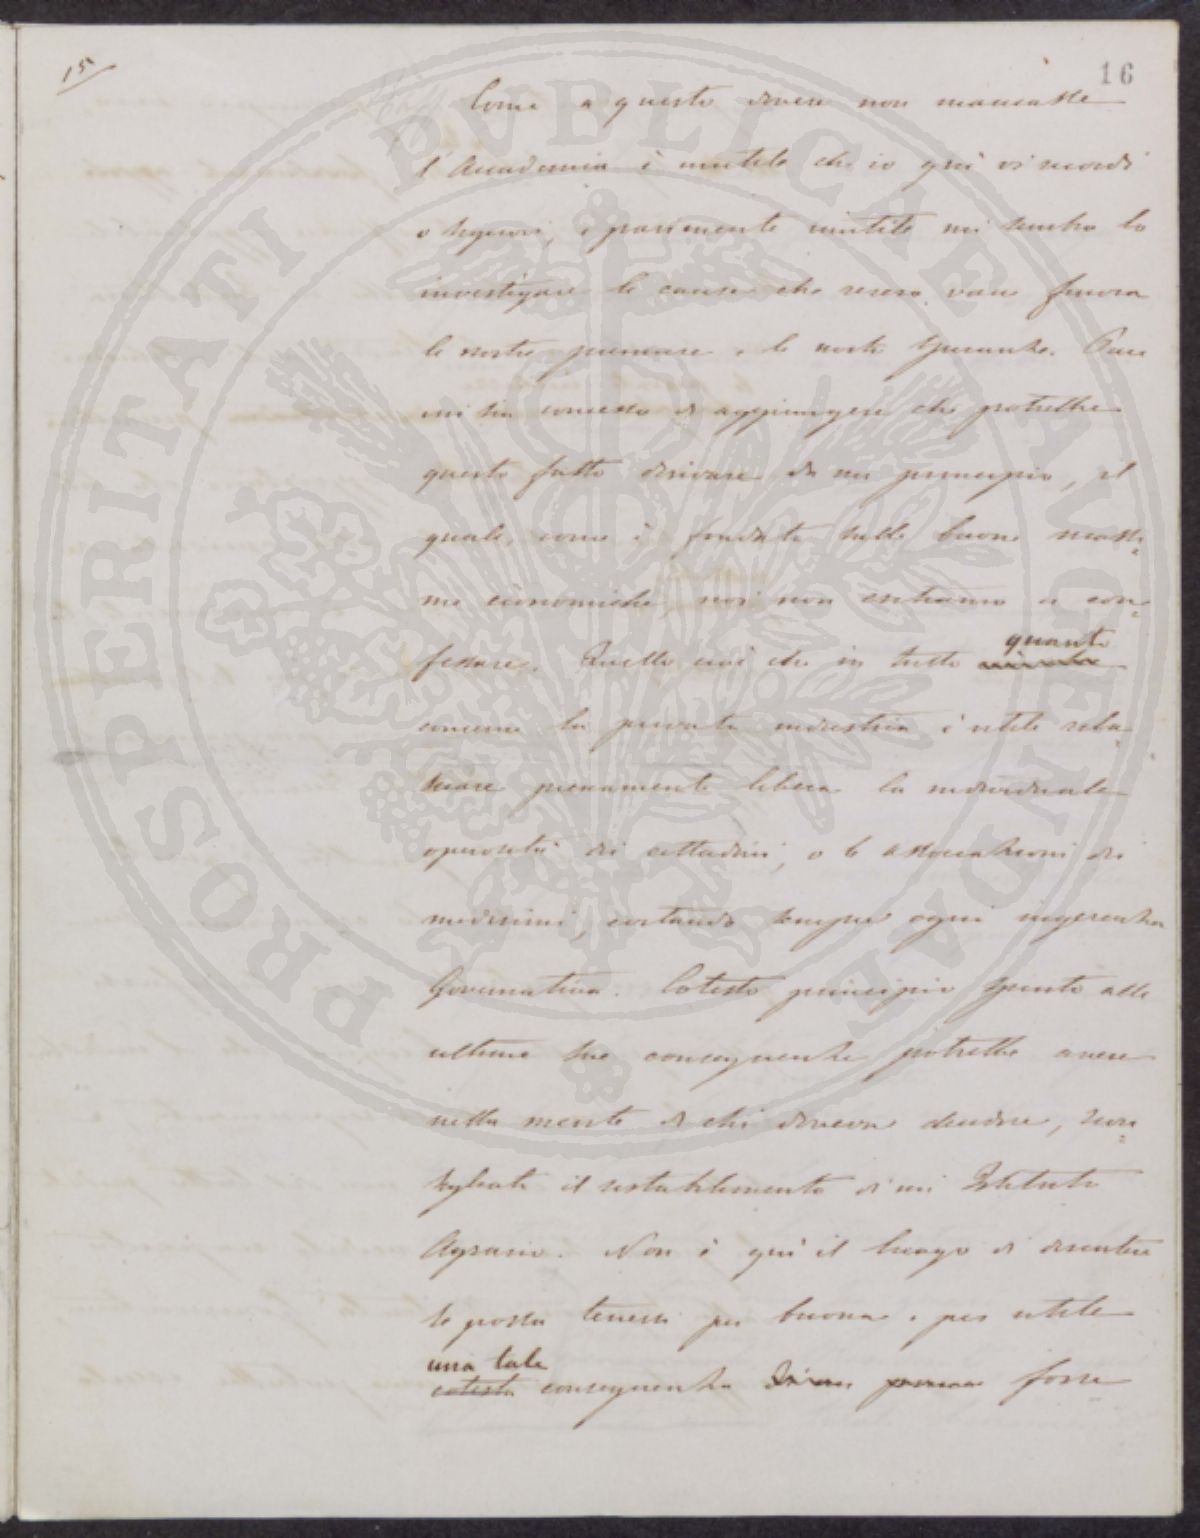 15
16
Come a questo dovere non mancasse
l'Accademia è inutile che io quì vi ricordi
o Signori, e parimente inutile mi sembra lo
investigare le cause che resero vane finora
le nostre premure e le nostre speranze. Pure
mi sia concesso di aggiungere che potrebbe
questo fatto derivare da un principio, il
quale, come è fondato sulle buone massi=
me economiche, noi non esitiamo a con=
fessare. Quello cioè che in tutto quanto
concerne la privata industria è utile rila=
sciare pienamente libera la individuale
operosità dei cittadini, o le associazioni dei
medesimi, evitando sempre ogni ingerenza
Governativa. Cotesto principio spinto alle
ultime sue conseguenze potrebbe avere
nella mente di chi doveva decidere, scon=
sigliato il ristabilimento di un Istituto
Agrario. Non è quì il luogo di discutere
se possa tenersi per buona e per utile
una tale
cotesta conseguenza forse
PROSPERITATI PVBLICAE AVGENDAE